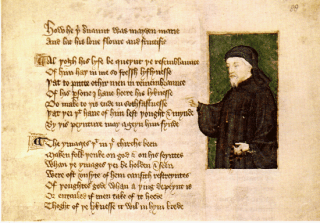 How he þi seruaunt was mayden marie
And lat his loue floure and fructifie
Al þogh his lyfe be queynt þe resemblaunce
Of him haþ in me so fressh lyflynesse
Þat to putte othir men in remembraunce
Of his persone I haue heere his lyknesse
Do make to þis ende in sothfastnesse
Þat þei þat haue of him lest þought & mynde
By þis peynture may ageyn him fynde
The ymages þat in þe chirche been
Maken folk þenke on god & on his seyntes
Whan þe ymages þei beholden & seen
Were oft vnsyte of hem causith restreyntes
Of þoughtes gode whan a þing depeynt is
Or entailed if men take of it heede
Thoght of þe lyknesse it wil in hem brede